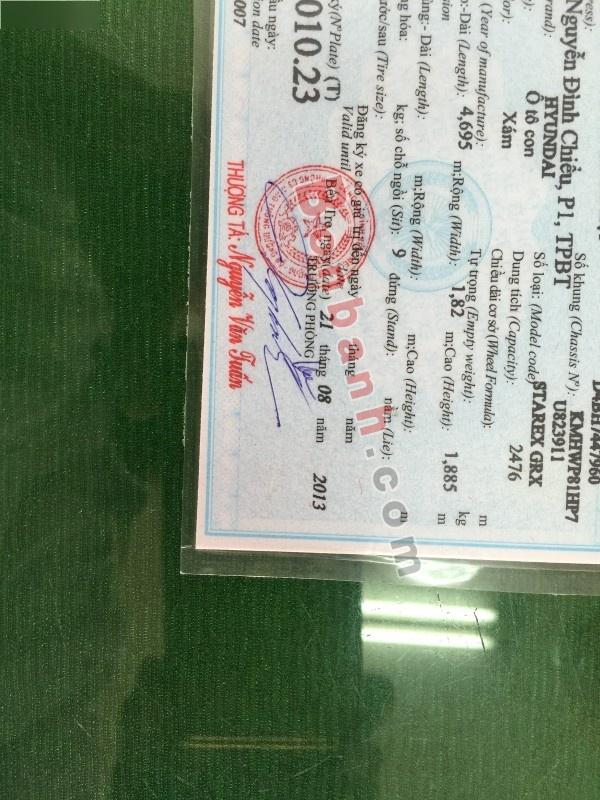 ress): Nguyễn Đình Chiểu, P1, TPBT
rand): HYUNDAI
Số khung (Chassis Nº): KMHWP81HP7
U823911
D4BH7447960
Ô tô con
Số loại: (Model code) STAREX GRX
or): Xám
Dung tích (Capacity): 2476
(Year of manufacture):
Chiều dài cơ sở (Wheel Formula): m
Tự trọng (Empty weight): kg
Dài (Length): 4,695 m;Rộng (Width): 1,82 m;Cao (Height): 1,885 m
Dài (Length): m;Rộng (Width): m;Cao (Height): m
ng hóa: kg; số chỗ ngồi (Sit): 9 đứng (Stand): nằm (Lie):
ước/sau (Tire size):
Đăng ký xe có giá trị đến ngày tháng năm
Valid until
ký(NºPlate) (T)
010.23
Bến Tre, ngày (date) 21 tháng 08 năm 2013
TRƯỞNG PHÒNG
ầu ngày:
ion date
007
THƯỢNG TÁ: Nguyễn Văn Tuấn
banh.com